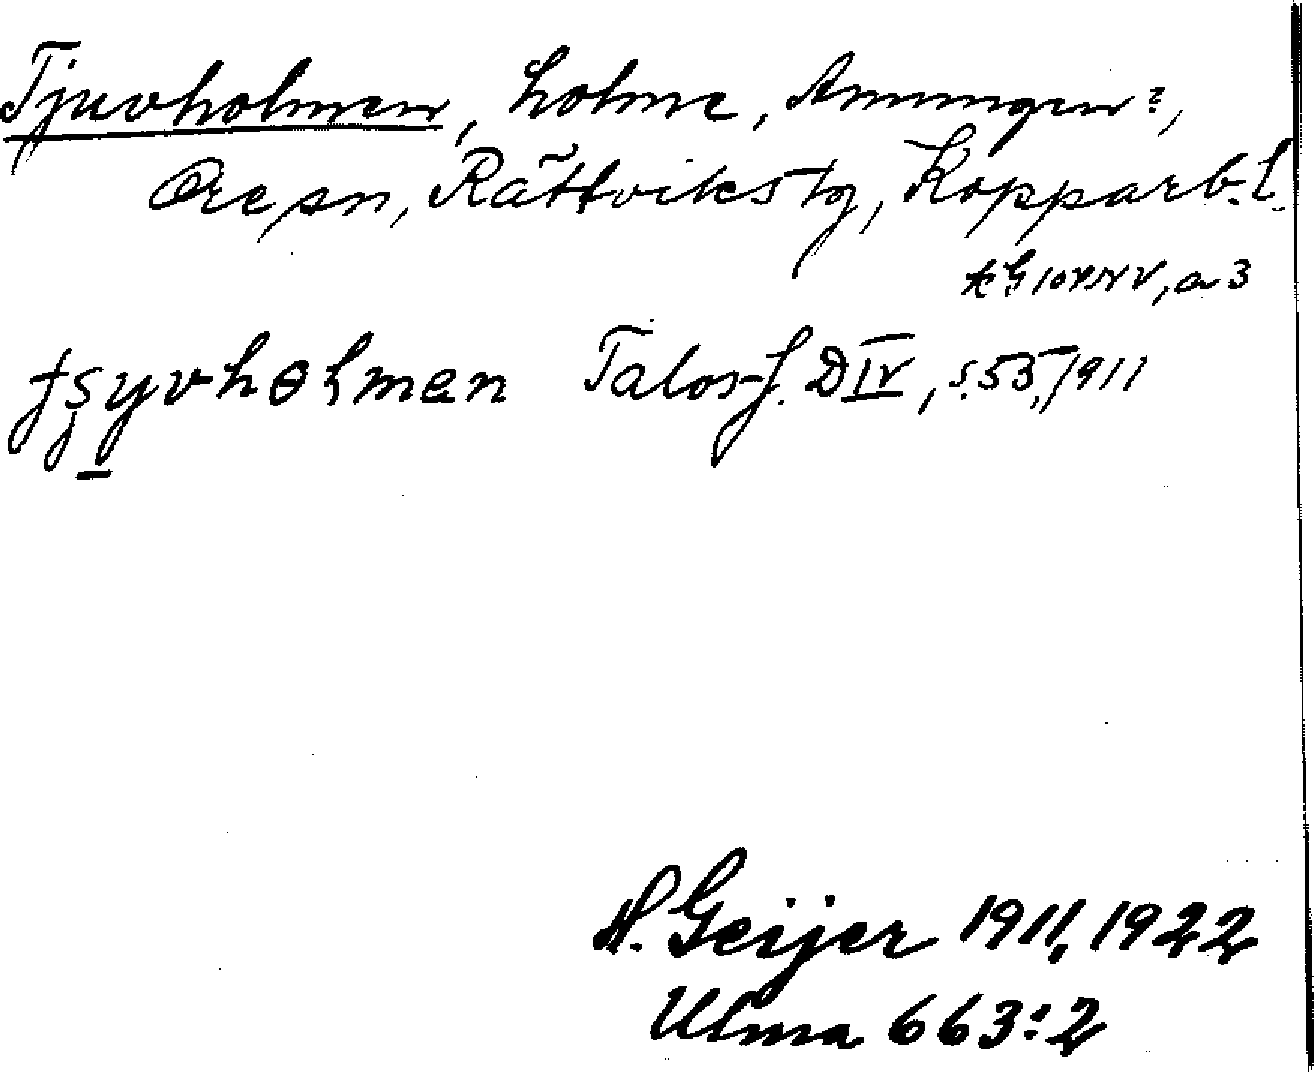 Tjuvholmen, holme, Amungen?,
Ore sn, Rättviks tg, Kopparb. l.
a 3
Talost. D IV, s. 53, 1911
H. Geijer 1911, 1922
Ulma 663:2